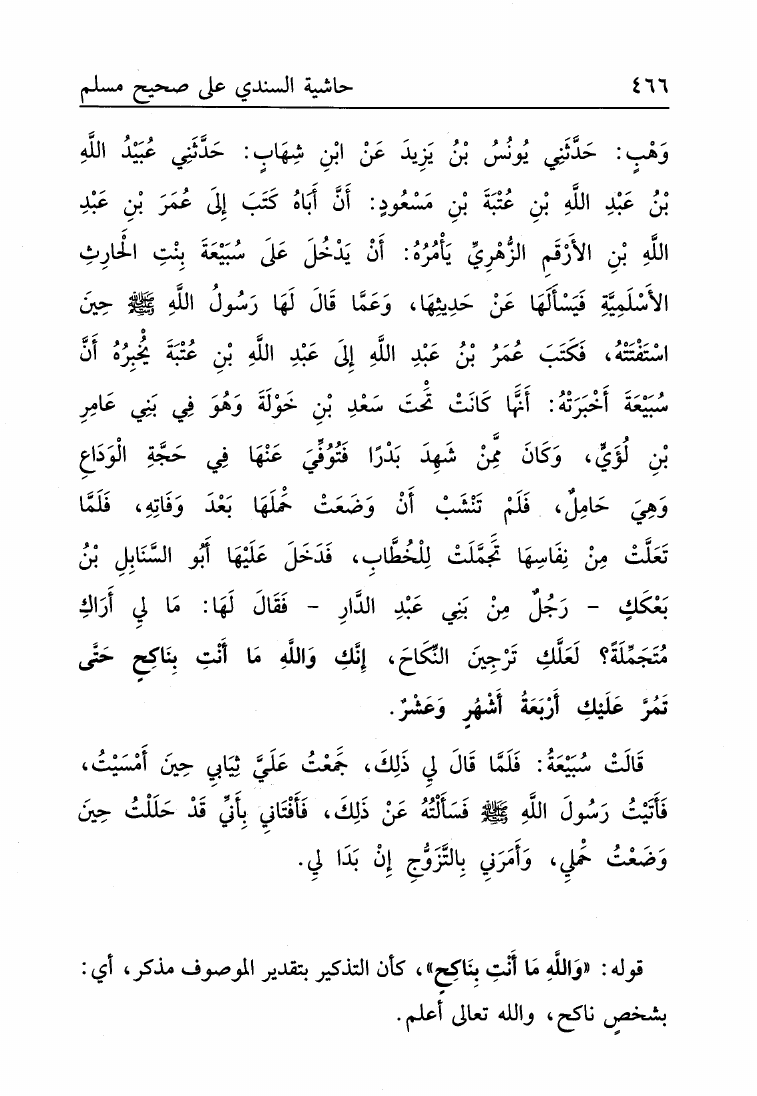 ٤٦٦ حاشية السندي على صحيح مسلم
وَهْبٍ: حَدَّثَنِي يُونُسُ بْنُ يَزِيدَ عَنْ ابْنِ شِهَابٍ: حَدَّثَنِي عُبَيْدُ اللَّهِ
بْنُ عَبْدِ اللَّهِ بْنِ عُتْبَةَ بْنِ مَسْعُودٍ: أَنَّ أَبَاهُ كَتَبَ إِلَى عُمَرَ بْنِ عَبْدِ
اللَّهِ بْنِ الأَرْقَمِ الزُّهْرِيِّ يَأْمُرُهُ: أَنْ يَدْخُلَ عَلَى سُبَيْعَةَ بِنْتِ الْحَارِثِ
الأَسْلَمِيَّةِ فَيَسْأَلَهَا عَنْ حَدِيثِهَا، وَعَمَّا قَالَ لَهَا رَسُولُ اللَّهِ ﷺ حِينَ
اسْتَفْتَتْهُ، فَكَتَبَ عُمَرُ بْنُ عَبْدِ اللَّهِ إِلَى عَبْدِ اللَّهِ بْنِ عُتْبَةَ يُخْبِرُهُ أَنَّ
سُبَيْعَةَ أَخْبَرَتْهُ: أَنَّهَا كَانَتْ تَحْتَ سَعْدِ بْنِ خَوْلَةَ وَهُوَ فِي بَنِي عَامِرِ
بْنِ لُؤَيٍّ، وَكَانَ مِمَّنْ شَهِدَ بَدْرًا فَتُوُفِّيَ عَنْهَا فِي حَجَّةِ الْوَدَاعِ
وَهِيَ حَامِلٌ، فَلَمْ تَنْشَبْ أَنْ وَضَعَتْ حَمْلَهَا بَعْدَ وَفَاتِهِ، فَلَمَّا
تَعَلَّتْ مِنْ نِفَاسِهَا تَجَمَّلَتْ لِلْخُطَّابِ، فَدَخَلَ عَلَيْهَا أَبُو السَّنَابِلِ بْنُ
بَعْكَكٍ – رَجُلٌ مِنْ بَنِي عَبْدِ الدَّارِ – فَقَالَ لَهَا: مَا لِي أَرَاكِ
مُتَجَمِّلَةً؟ لَعَلَّكِ تَرْجِينَ النِّكَاحَ، إِنَّكِ وَاللَّهِ مَا أَنْتِ بِنَاكِحٍ حَتَّى
تَمُرَّ عَلَيْكِ أَرْبَعَةُ أَشْهُرٍ وَعَشْرٌ.
قَالَتْ سُبَيْعَةُ: فَلَمَّا قَالَ لِي ذَلِكَ، جَمَعْتُ عَلَيَّ ثِيَابِي حِينَ أَمْسَيْتُ،
فَأَتَيْتُ رَسُولَ اللَّهِ ﷺ فَسَأَلْتُهُ عَنْ ذَلِكَ، فَأَفْتَانِي بِأَنِّي قَدْ حَلَلْتُ حِينَ
وَضَعْتُ حَمْلِي، وَأَمَرَنِي بِالتَّزَوُّجِ إِنْ بَدَا لِي.
قوله: «وَاللَّهِ مَا أَنْتِ بِنَاكِحٍ»، كأن التذكير بتقدير الموصوف مذكر، أي:
بشخصٍ ناكح، والله تعالى أعلم.